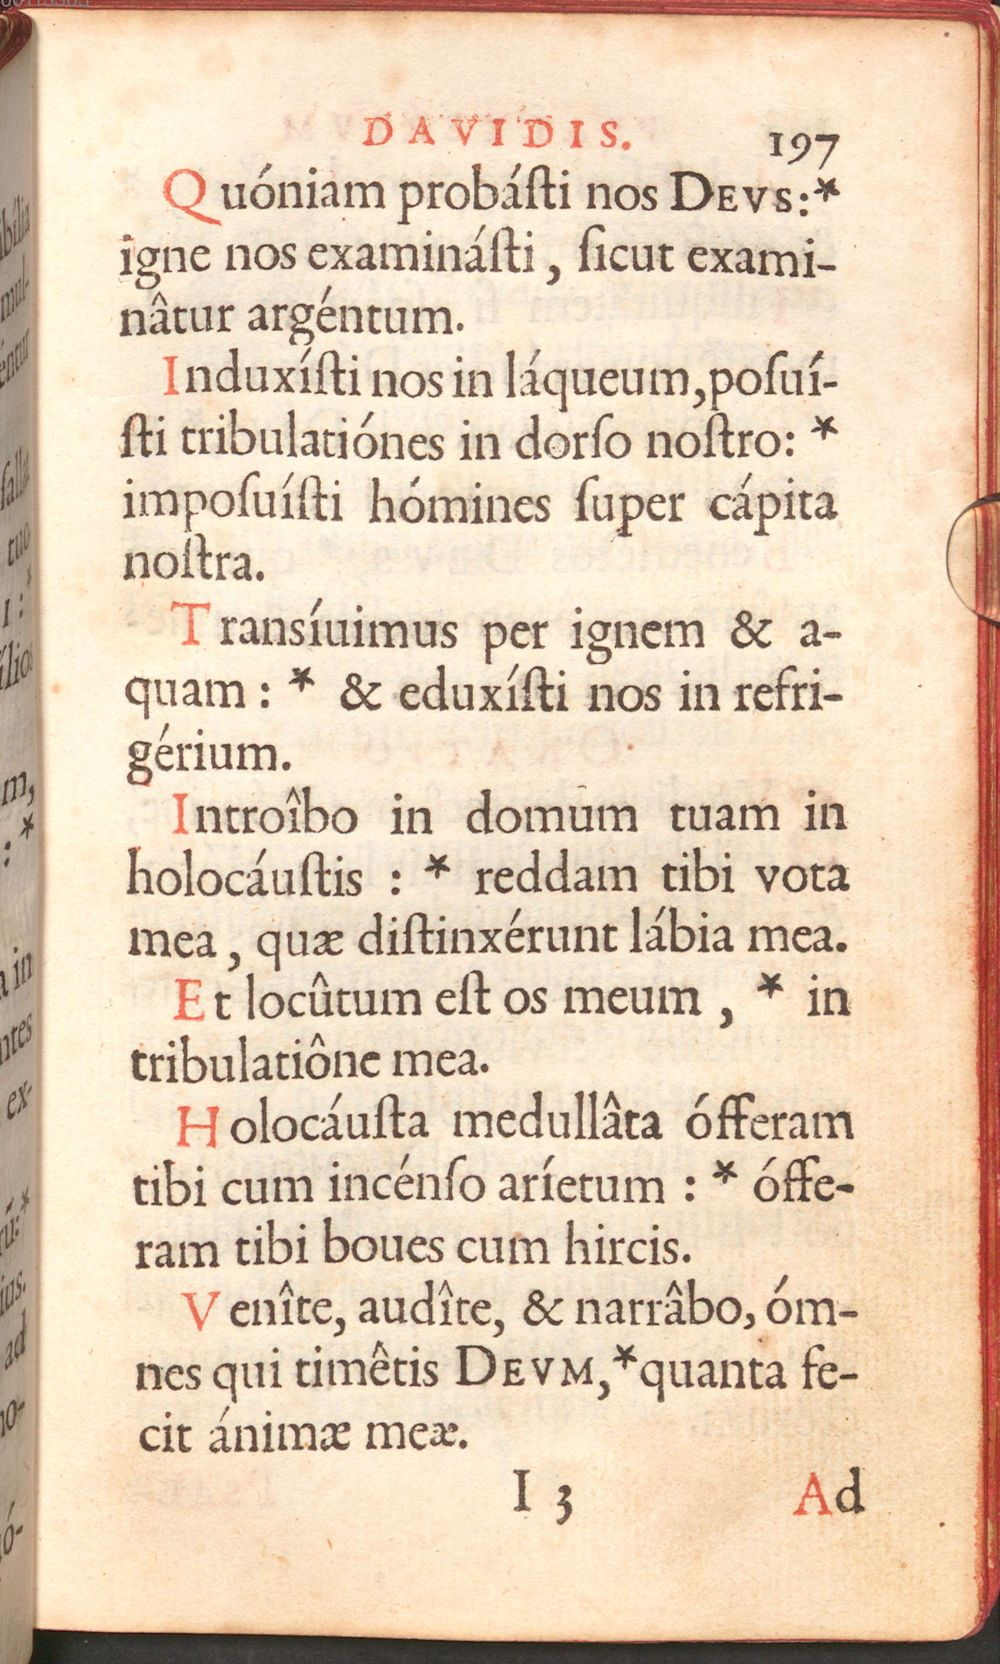 DAVIDIS. 197
Quóniam probáſti nos DEVS:*
igne nos examináſti, ſicut exami-
nâtur argéntum.
Induxíſti nos in láqueum, poſuí-
ſti tribulatiónes in dorſo noſtro: *
impoſuíſti hómines ſuper cápita
noſtra.
Tranſíuimus per ignem & a-
quam : * & eduxíſti nos in refri-
gérium.
Introîbo in domum tuam in
holocáuſtis : * reddam tibi vota
mea, quæ diſtinxérunt lábia mea.
Et locûtum eſt os meum, * in
tribulatiône mea.
Holocáuſta medullâta ófferam
tibi cum incénſo aríetum : * óffe-
ram tibi boues cum hircis.
Venîte, audîte, & narrâbo, óm-
nes qui timêtis DEVM,* quanta fe-
cit ánimæ meæ.
I 3 Ad